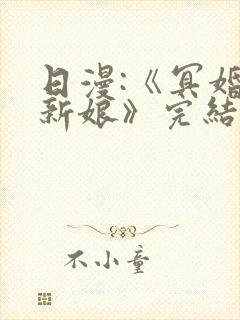 日漫:《冥婚
新娘》完結
不小童